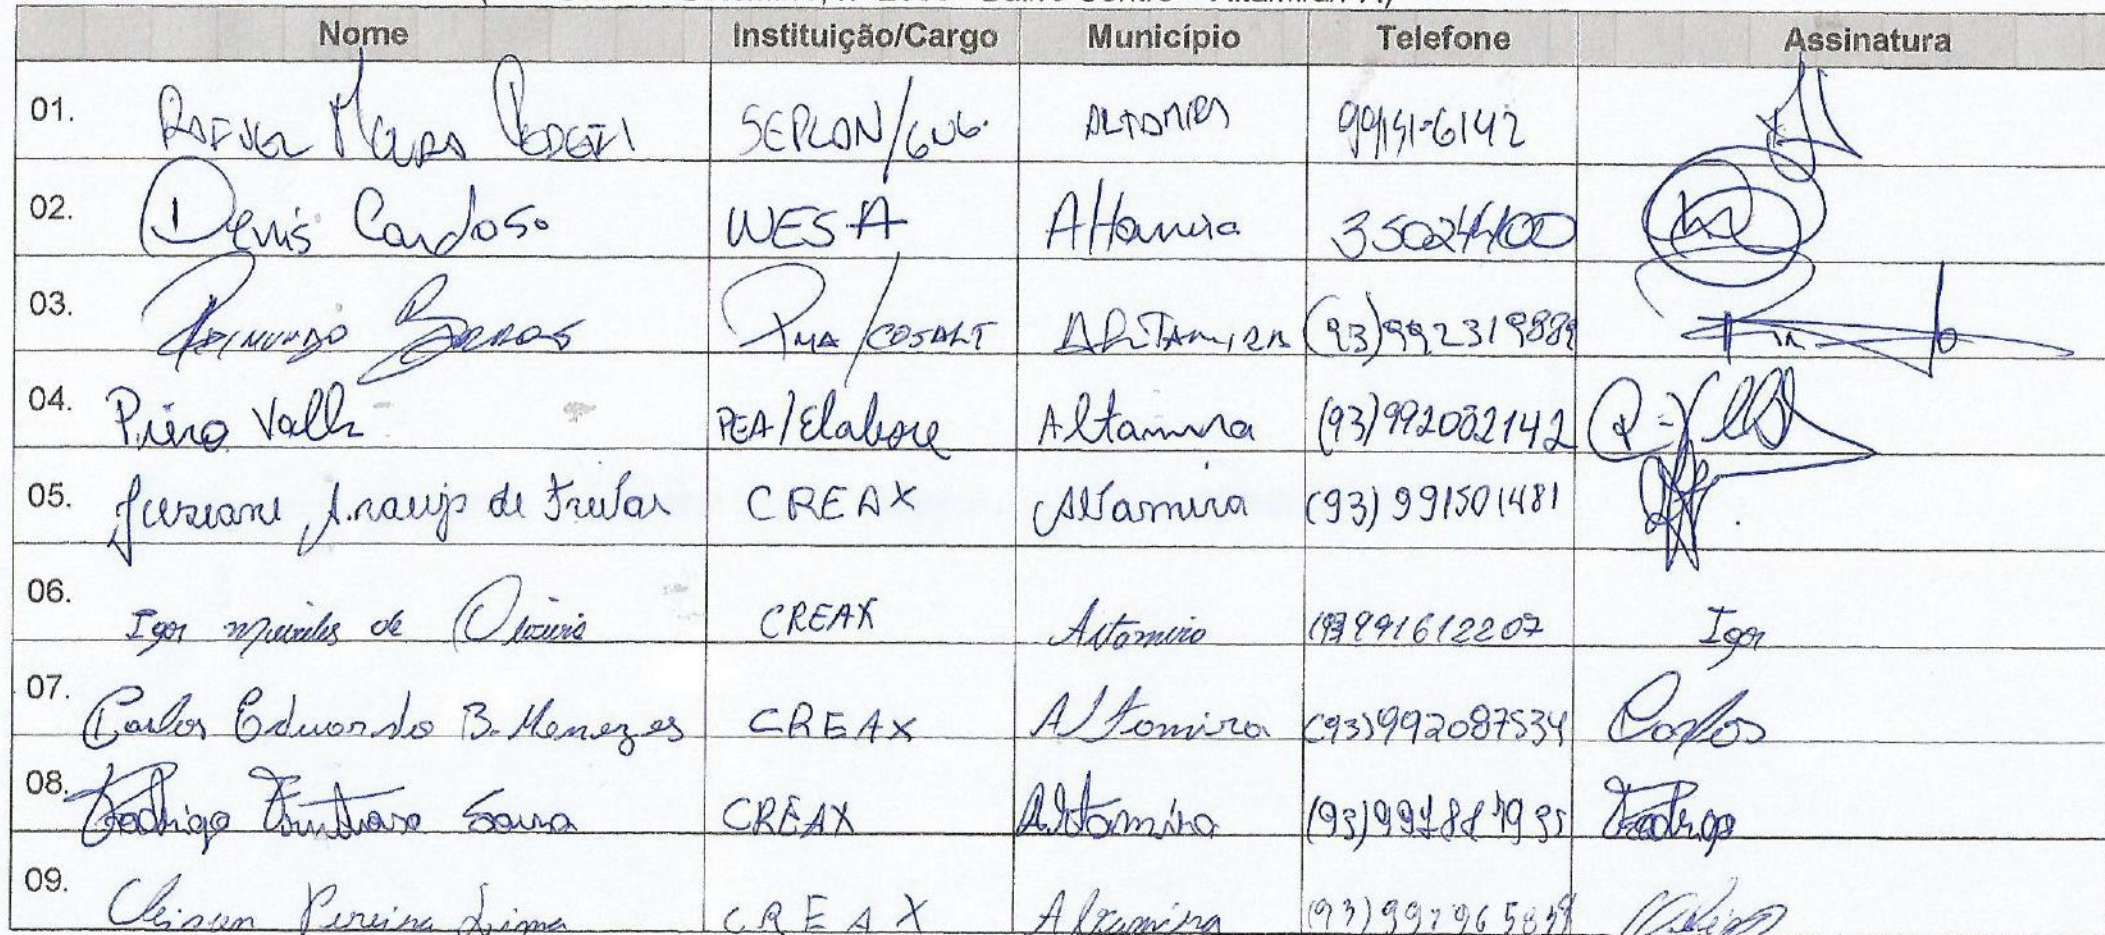 Bairro Centro - Altamira/PA)
Nome Instituição/Cargo Município Telefone Assinatura
01. Moura SEPLAN/ ALTAMIRA 99151-6142
02. Denis Cardoso WESA Altamira 35024400
03. Raimundo Barros PMA/COSALT ALTAMIRA (93)992319889
04. Piero Valle PEA/Elabore Altamira (93)992002142
05. Jusciane Araujo de Freitas CREAX Altamira (93)991501481
06. Igor Meireles de Oliveira CREAX Altamira (93)991612207 Igor
07. Carlos Eduardo B. Menezes CREAX Altamira (93)992087534 Carlos
08. Rodrigo Souza CREAX Altamira Rodrigo
09. Pereira Lima CREAX Altamira